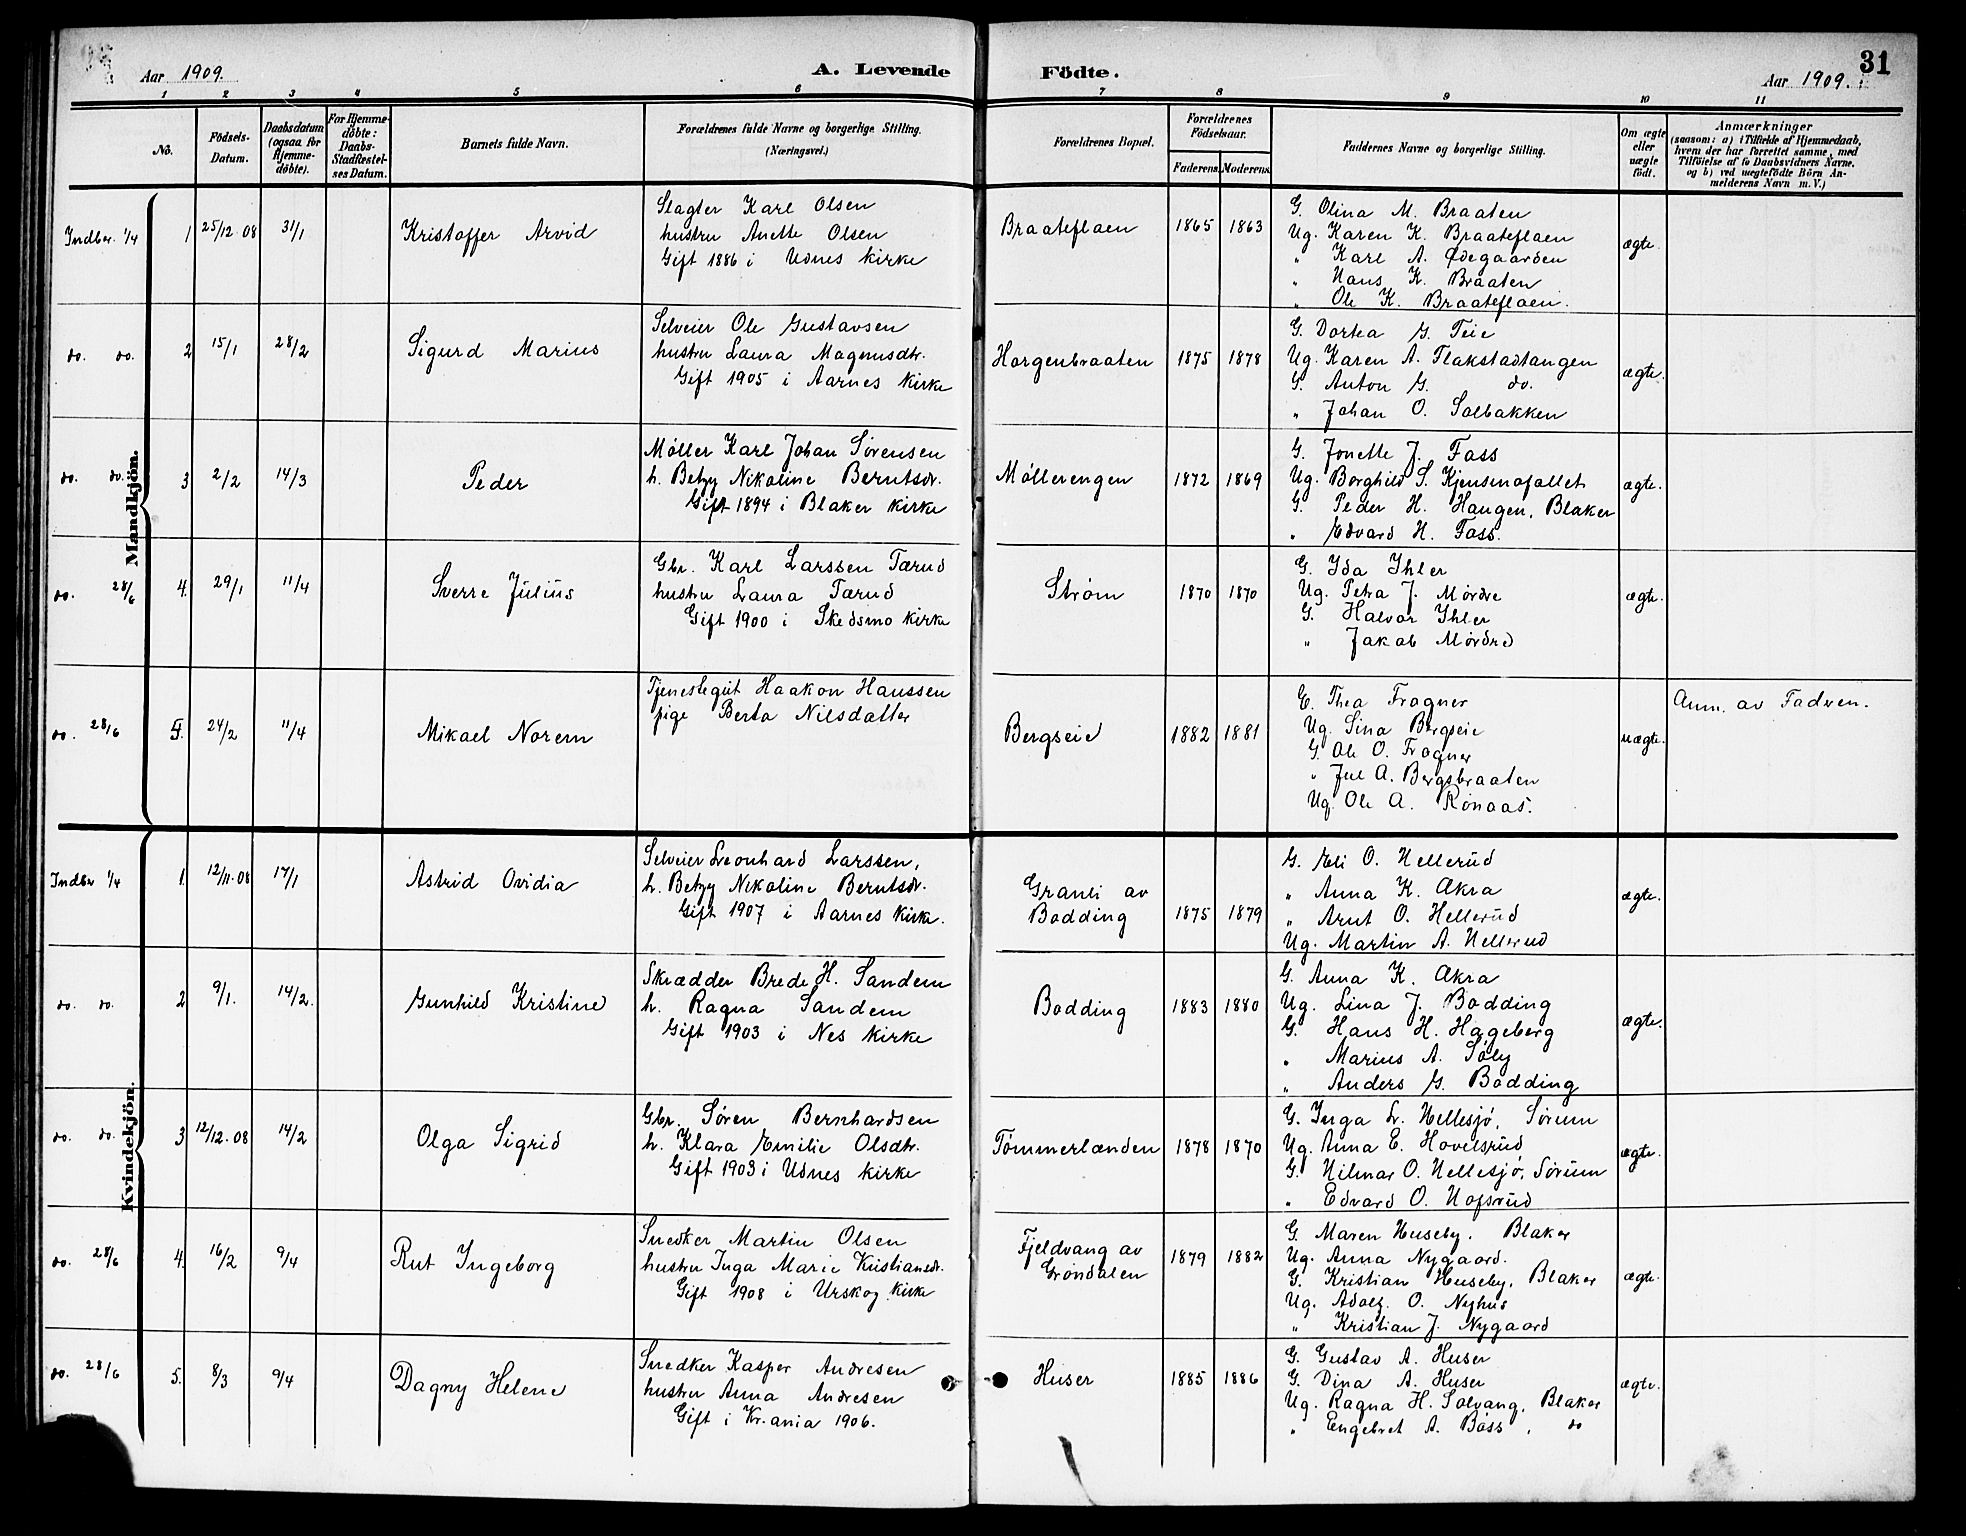 Aar 1909.
A. Levende Födte.
31
Aar 1909.
1 2 3 4 5 6 7 8 9 10 11
No.
Födsels-Datum.
Daabsdatum (ogsaa for Hjemme-døbte).
For Hjemme-døbte: Daabs-Stadfæstel-ses Datum.
Barnets fulde Navn.
Forældrenes fulde Navne og borgerlige Stilling.
(Næringsvei.)
Forældrenes Bopæl.
Forældrenes Födselsaar.
Faderens. Moderens.
Faddernes Navne og borgerlige Stilling.
Om ægte eller uægte födt.
Anmærkninger
(saasom: a) i Tilfælde af Hjemmedaab,
hvem der har forrettet samme, med
Tilföielse af to Daabsvidners Navne.
og b) ved uægtefødte Börn An-
melderens Navn m. V.)
Mandkjön.
Indber. 1/4 1 25/12 08 31/1 Kristoffer Arvid
Slagter Karl Olsen
hustru Anette Olsen
Gift 1886 i Udnes kirke
Braateflaen 1865 1863
G. Olina M. Braaten
Ug. Karen K. Braateflaen
" Karl A. Ødegaarden
" Hans K. Braaten
" Ole K. Braateflaen.
ægte.
do. do. 2 15/1 28/2 Sigurd Marius
Selveier Ole Gustavsen
hustru Laura Magnusdtr.
Gift 1905 i Aarnes kirke
Horgenbraaten 1875 1878
G. Dortea G. Teie
Ug. Karen A. Flakstadtangen
G. Anton G. do.
" Johan O. Solbakken
ægte.
do. do. 3 2/2 14/3 Peder
Møller Karl Johan Sørensen
h. Betzy Nikoline Berntsdr.
Gift 1894 i Blaker kirke
Møllerengen 1872 1869
G. Jonette J. Foss
Ug. Borghild S. Kjensmofallet
G. Peder H. Haugen, Blaker
" Edvard H. Foss.
ægte.
do. 28/6 4. 29/1 11/4 Sverre Julius
Gbr. Karl Larssen Tærud
hustru Laura Tærud
Gift 1900 i Skedsmo kirke
Strøm 1870 1870
G. Ida Ihler
Ug. Petra J. Mørdre
G. Halvor Ihler
" Jakob Mørdre
ægte.
do. 28/6 5. 24/2 11/4 Mikael Norem
Tjenestegut Haakon Hanssen
pige Berta Nilsdatter
Bergseie 1882 1881
E. Thea Frogner
Ug. Lina Bergseie
G. Ole O. Frogner
" Jul A. Bergsbraaten
Ug. Ole A. Rønaas.
uægte.
Anm. av Fadren.
Kvindekjön.
Indber 1/4 1. 12/11.08 17/1 Astrid Ovidia
Selveier Leonhard Larssen,
h. Betzy Nikoline Berntsdr.
Gift 1907 i Aarnes kirke.
Granli av
Bodding 1875 1879
G. Eli O. Hellerud
" Anna K. Akra
" Arnt O. Hellerud
Ug. Martin A. Hellerud
ægte.
do. do. 2 9/1. 14/2. Gunhild Kristine
Skrædder Brede H. Sandem
h. Ragna Sandem
Gift 1903 i Nes kirke
Bodding 1883 1880
G. Anna K. Akra
Ug. Lina J. Bodding
G. Hans H. Hageberg
" Marius A. Søly
" Anders G. Bodding
ægte.
do. do. 3 12/12.08 14/2 Olga Sigrid
Gbr. Søren Bernhardsen
h. Klara Emilie Olsdtr.
Gift 1903 i Udnes kirke
Tømmerlænden 1878 1870
G. Inga L. Hellesjø, Sørum
Ug. Anna E. Hovelsrud
G. Hilmar O. Hellesjø, Sørum
" Edvard O. Hofsrud
ægte.
do. 28/6 4. 16/2 9/4 Rut Ingeborg
Snedker Martin Olsen
hustru Inga Marie Kristiansdr.
Gift 1908 i Urskog kirke
Fjeldvang av
Grøndalen 1879 1882
G. Maren Huseby, Blaker
Ug. Anna Nygaard.
G. Kristian Huseby, Blaker
Ug. Adolf O. Nyhus
" Kristian J. Nygaard
ægte.
do. 28/6 5. 8/3 9/4 Dagny Helene
Snedker Kasper Andresen
hustru Anna Andresen
Gift i Kr.ania 1906.
Huser 1885 1886
G. Gustav A. Huser
G. Dina A. Huser
Ug. Ragna H. Solvang, Blaker
" Engebret A. Bøss, do
ægte.